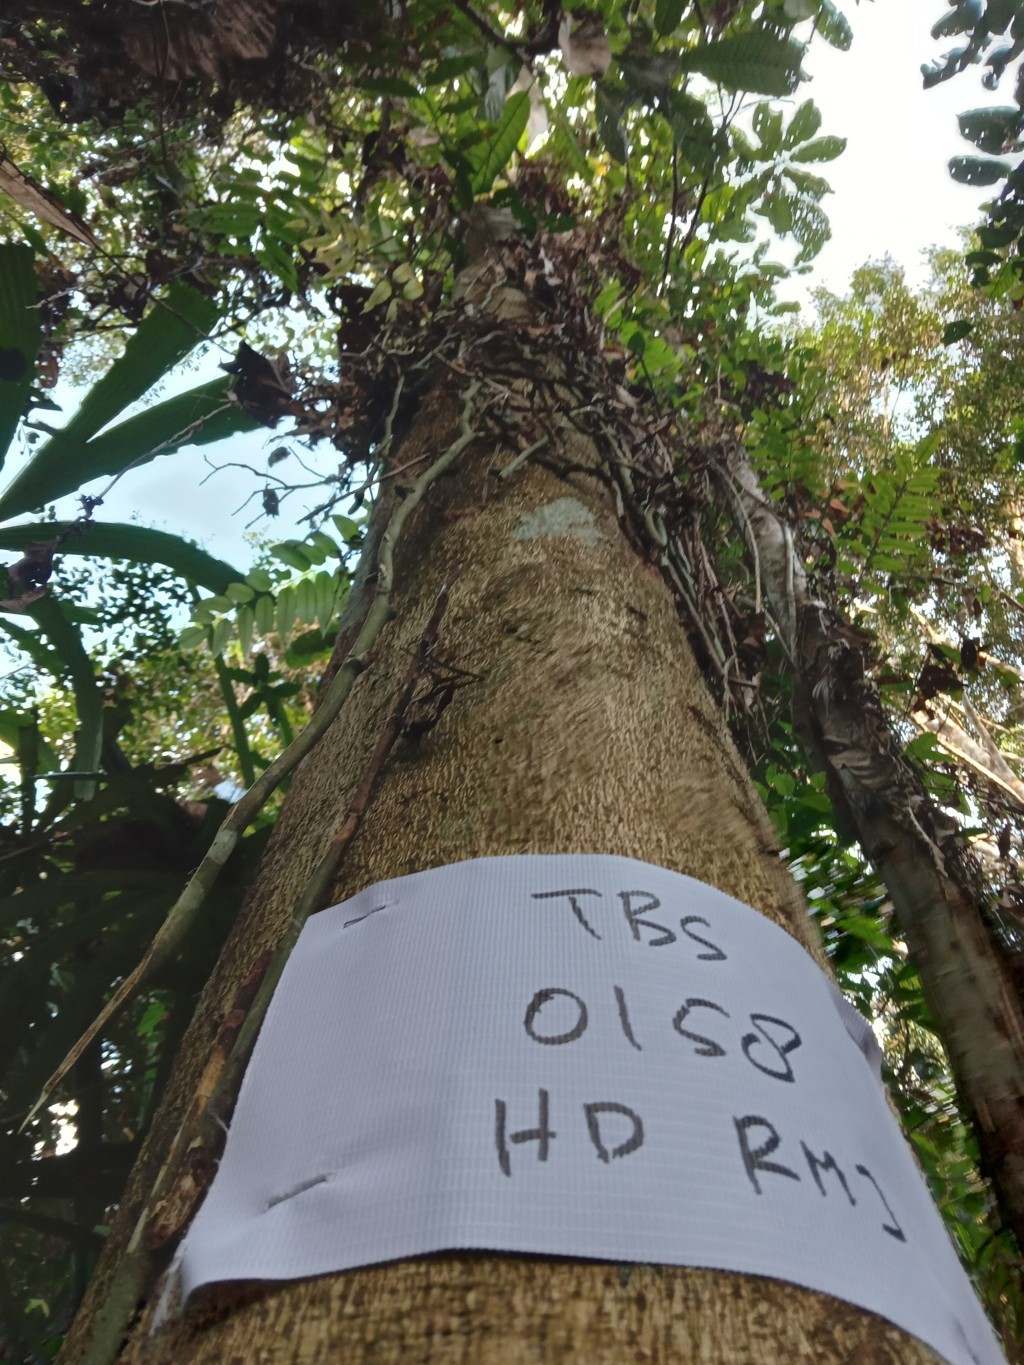 TBS
0158
HD RMJ